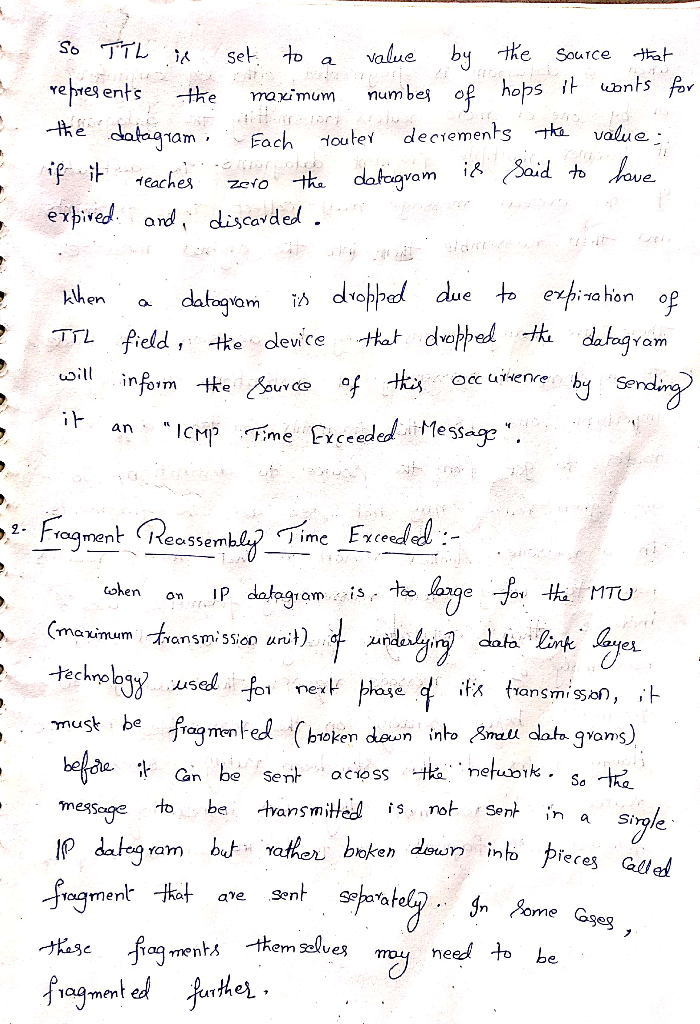 So TTL is set to a value by the source that
represents the maximum number of hops it wants for
the datagram. Each router decrements the value;
if it reaches zero the datagram is said to have
expired and, discarded.
When a datagram is dropped due to expiration of
TTL field, the device that dropped the datagram
will inform the source of this occurrence by sending
it an "ICMP Time Exceeded Message".
2. Fragment Reassembly Time Exceeded :-
when an IP datagram is too large for the MTU
(maximum transmission unit) of underlying data link layer
technology used for next phase of it's transmission, it
must be fragmented (broken down into small data grams)
before it can be sent across the network. So the
message to be transmitted is not sent in a single
IP datagram but rather broken down into pieces called
fragment that are sent separately. In some cases,
these fragments themselves may need to be
fragmented further.